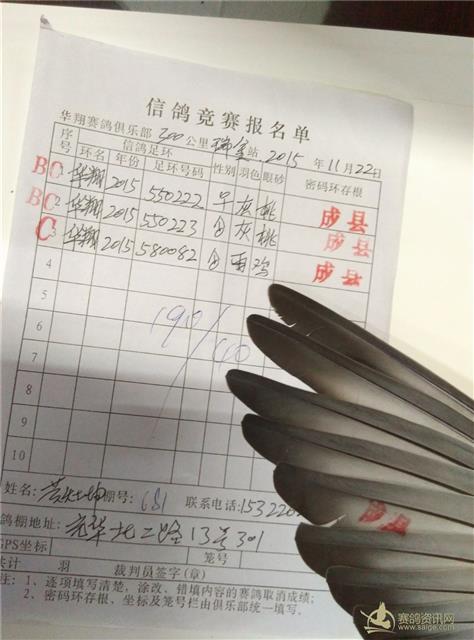 信鸽竞赛报名单
华翔赛鸽俱乐部 300 公里 瑞金 站 2015 年 11 月 22 日
序号 信鸽足环 性别 羽色 眼砂 密码环存根
环名 年份 足环号码
BC 1 华翔 2015 550222 灰 桃 成县
BC 2 华翔 2015 550223 灰 桃 成县
C 3 华翔 2015 580082 雨 鸡 成县
4
5
6
7
8
9
10
190/40
姓名: 棚号: 681 联系电话: 15322
鸽棚地址: 北二路 13 301
GPS坐标 笼号
共计 羽 裁判员签字(章)
注: 1、逐项填写清楚，涂改、错填内容的赛鸽取消成绩;
2、密码环存根、坐标及笼号栏由俱乐部统一填写。
成县
赛鸽资讯网
www.saige.com